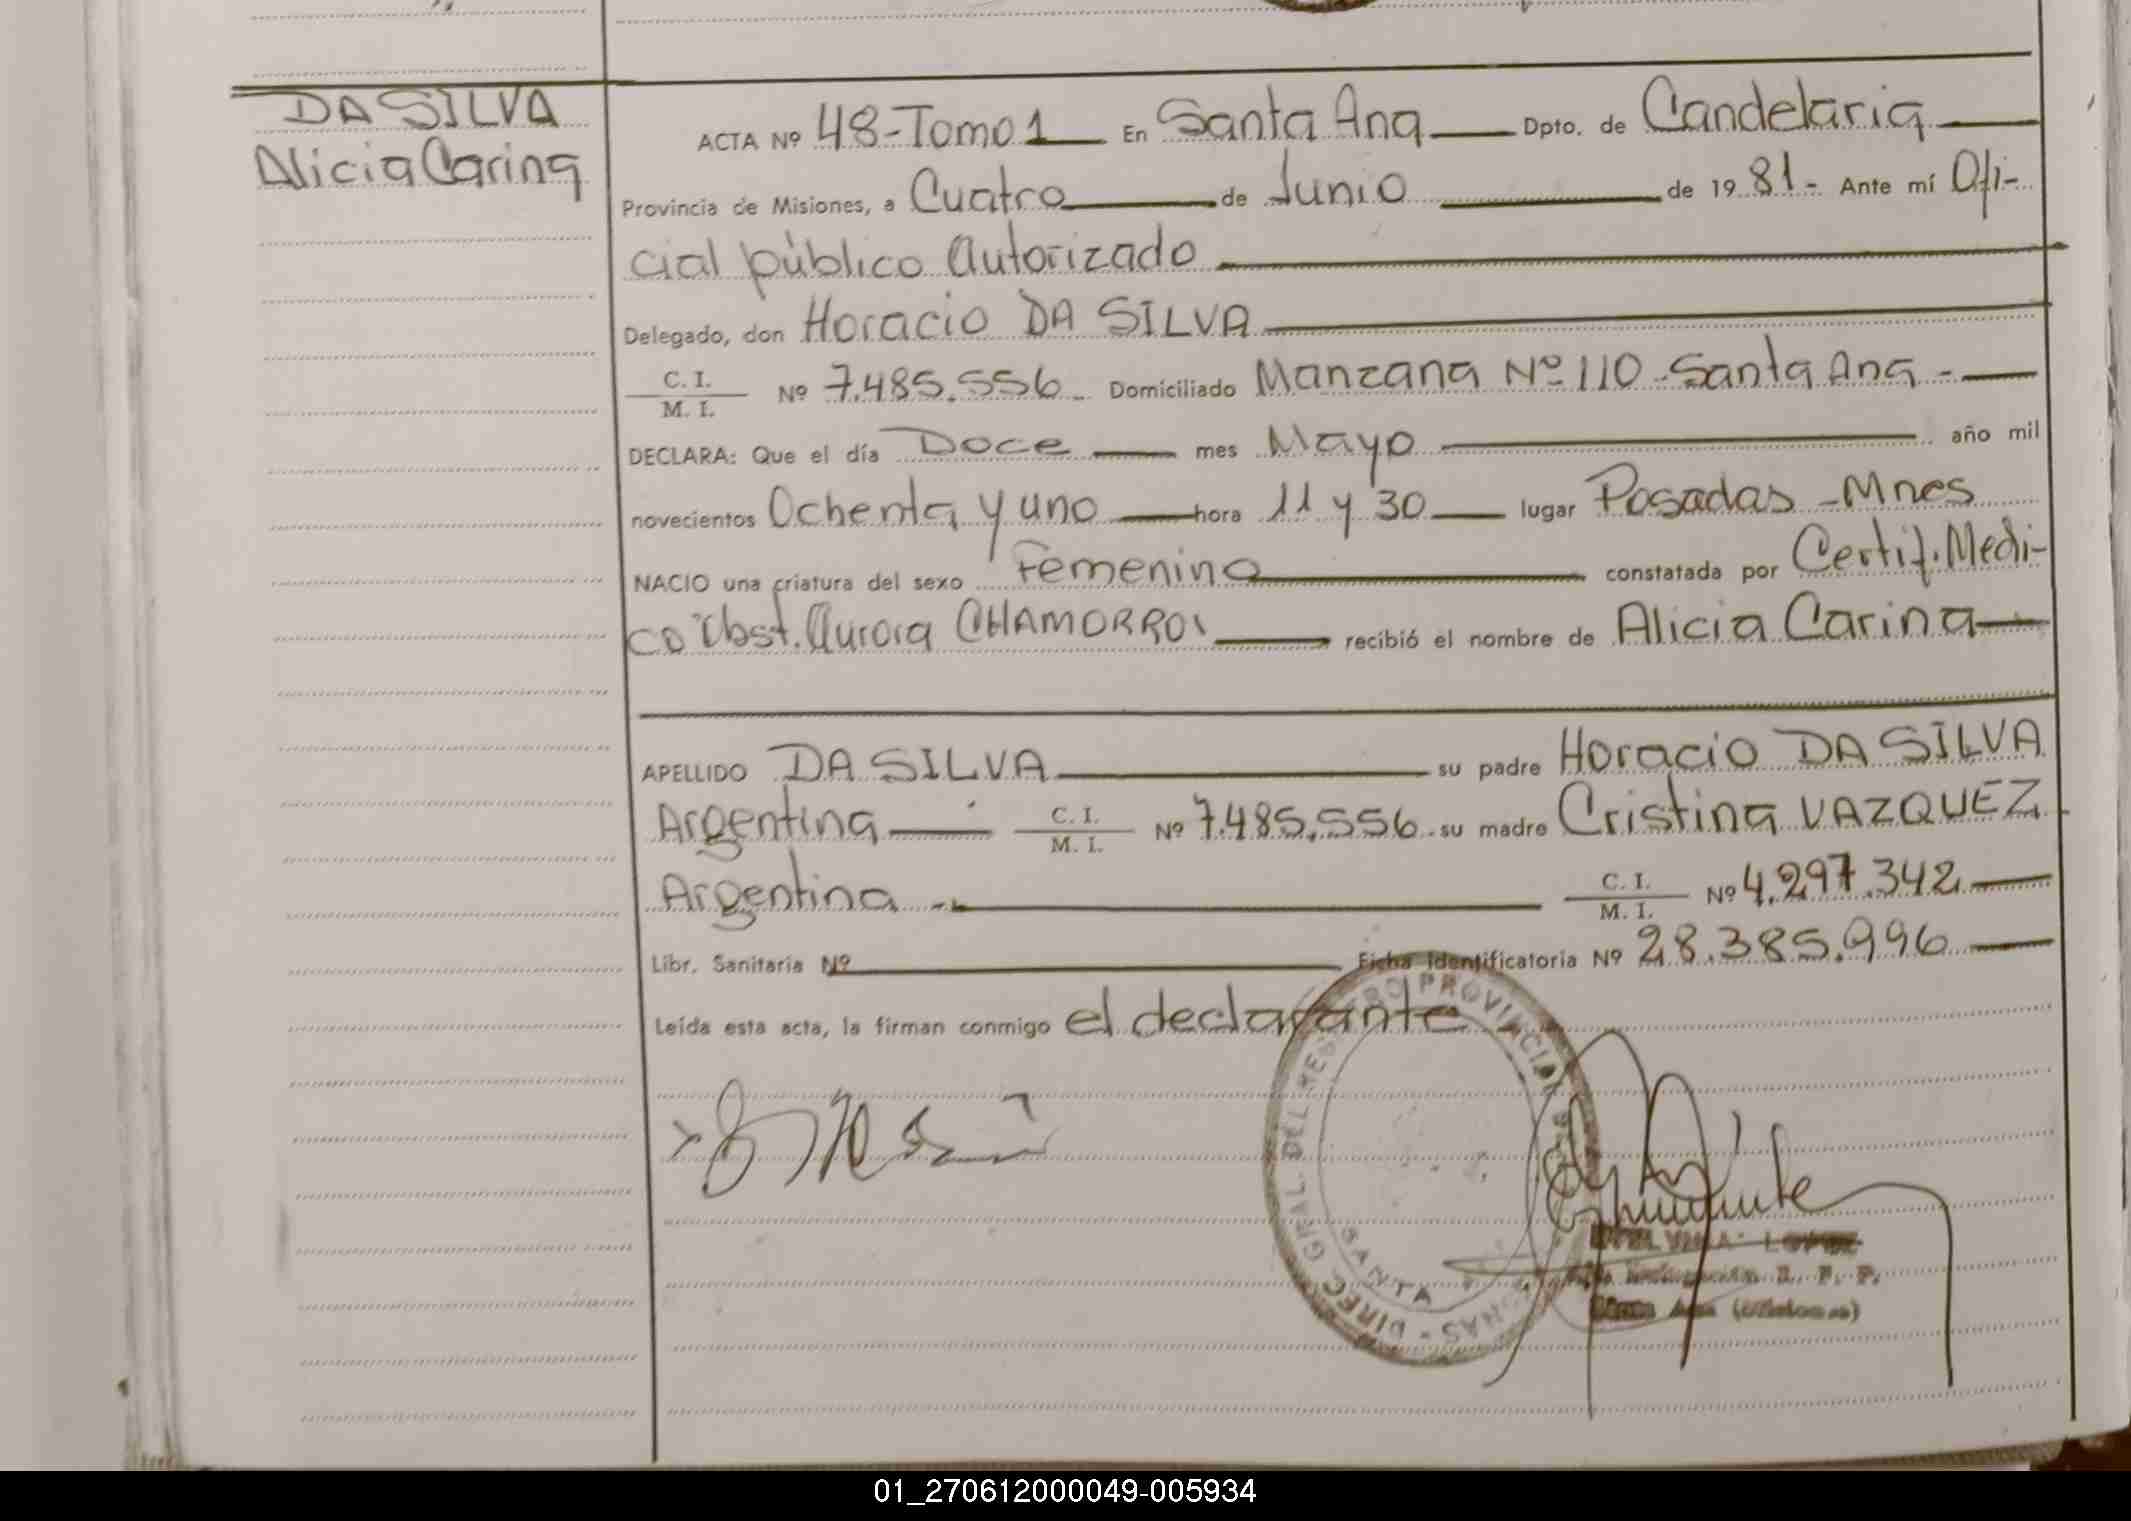 DA SILVA
Alicia Carina
ACTA Nº 48-Tomo 1 En Santa Ana Dpto. de Candelaria
Provincia de Misiones, a Cuatro de Junio de 19 81- Ante mí Ofi-
cial público Autorizado
Delegado, don Horacio DA SILVA
C. I.
M. I. Nº 7.485.556 Domiciliado Manzana Nº 110 - Santa Ana -
DECLARA: Que el día Doce mes Mayo año mil
novecientos Ochenta y uno hora 11 y 30 lugar Posadas - Mnes
NACIO una criatura del sexo Femenino constatada por Certif. Medi-
co Obst. Aurora CHAMORRO recibió el nombre de Alicia Carina
APELLIDO DA SILVA su padre Horacio DA SILVA
Argentina C. I. M. I. Nº 7.485.556 su madre Cristina VAZQUEZ
Argentina C. I. M. I. Nº 4.297.342
Libr. Sanitaria Nº Ficha identificatoria Nº 28.385.996
Leída esta acta, la firman conmigo el declarante
DIREC. GRAL. DEL REGISTRO PROVINCIAL
SANTA
LOPEZ
01_270612000049-005934